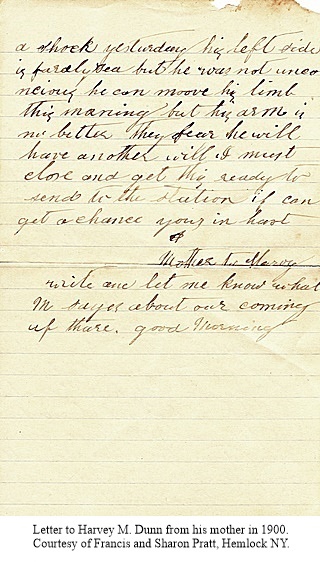 a shock yesturday his left side
is paralysea but he was not unco
neious he can moove his limb
this maning but his arm is
no better They fear he will
have another will I must
close and get this ready to
send to the station if can
get a chance yours in hast
Mother to Harvey
write and let me know what
M sayes about our coming
up there. good Morning
Letter to Harvey M. Dunn from his mother in 1900.
Courtesy of Francis and Sharon Pratt, Hemlock NY.